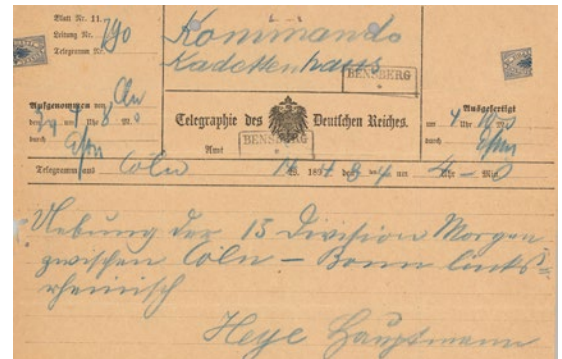 Blatt Nr. 11.
Leitung Nr.
Telegramm Nr. 790
Kommando
Kadettenhaus
BENSBERG
Aufgenommen von Cln
den 29 4 Uhr 8 M.
durch
Telegraphie des Deutschen Reiches.
Amt BENSBERG
Ausgefertigt
um 4 Uhr 10 M.
durch
Telegramm aus Cöln 189 den um 4 Uhr Min
Uebung der 15 Division Morgen
zwischen Cöln – Bonn links=
rheinisch
Heye Hauptmann